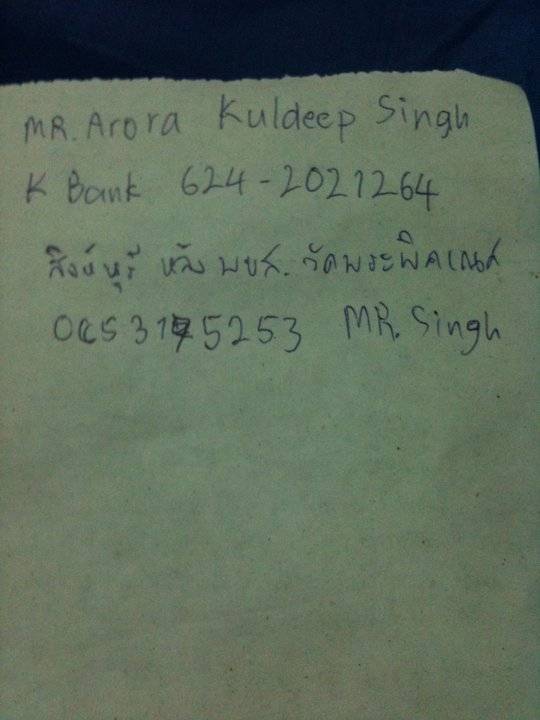 MR. Arora Kuldeep Singh
K Bank 624-2021264
สิงห์บุรี หลัง พขส. วัดพระพิคเณศ
MR. Singh